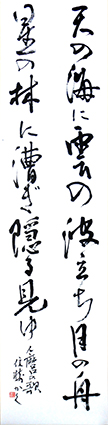 天の海に雲の波立ち月の舟
星の林に漕ぎ隠る見ゆ